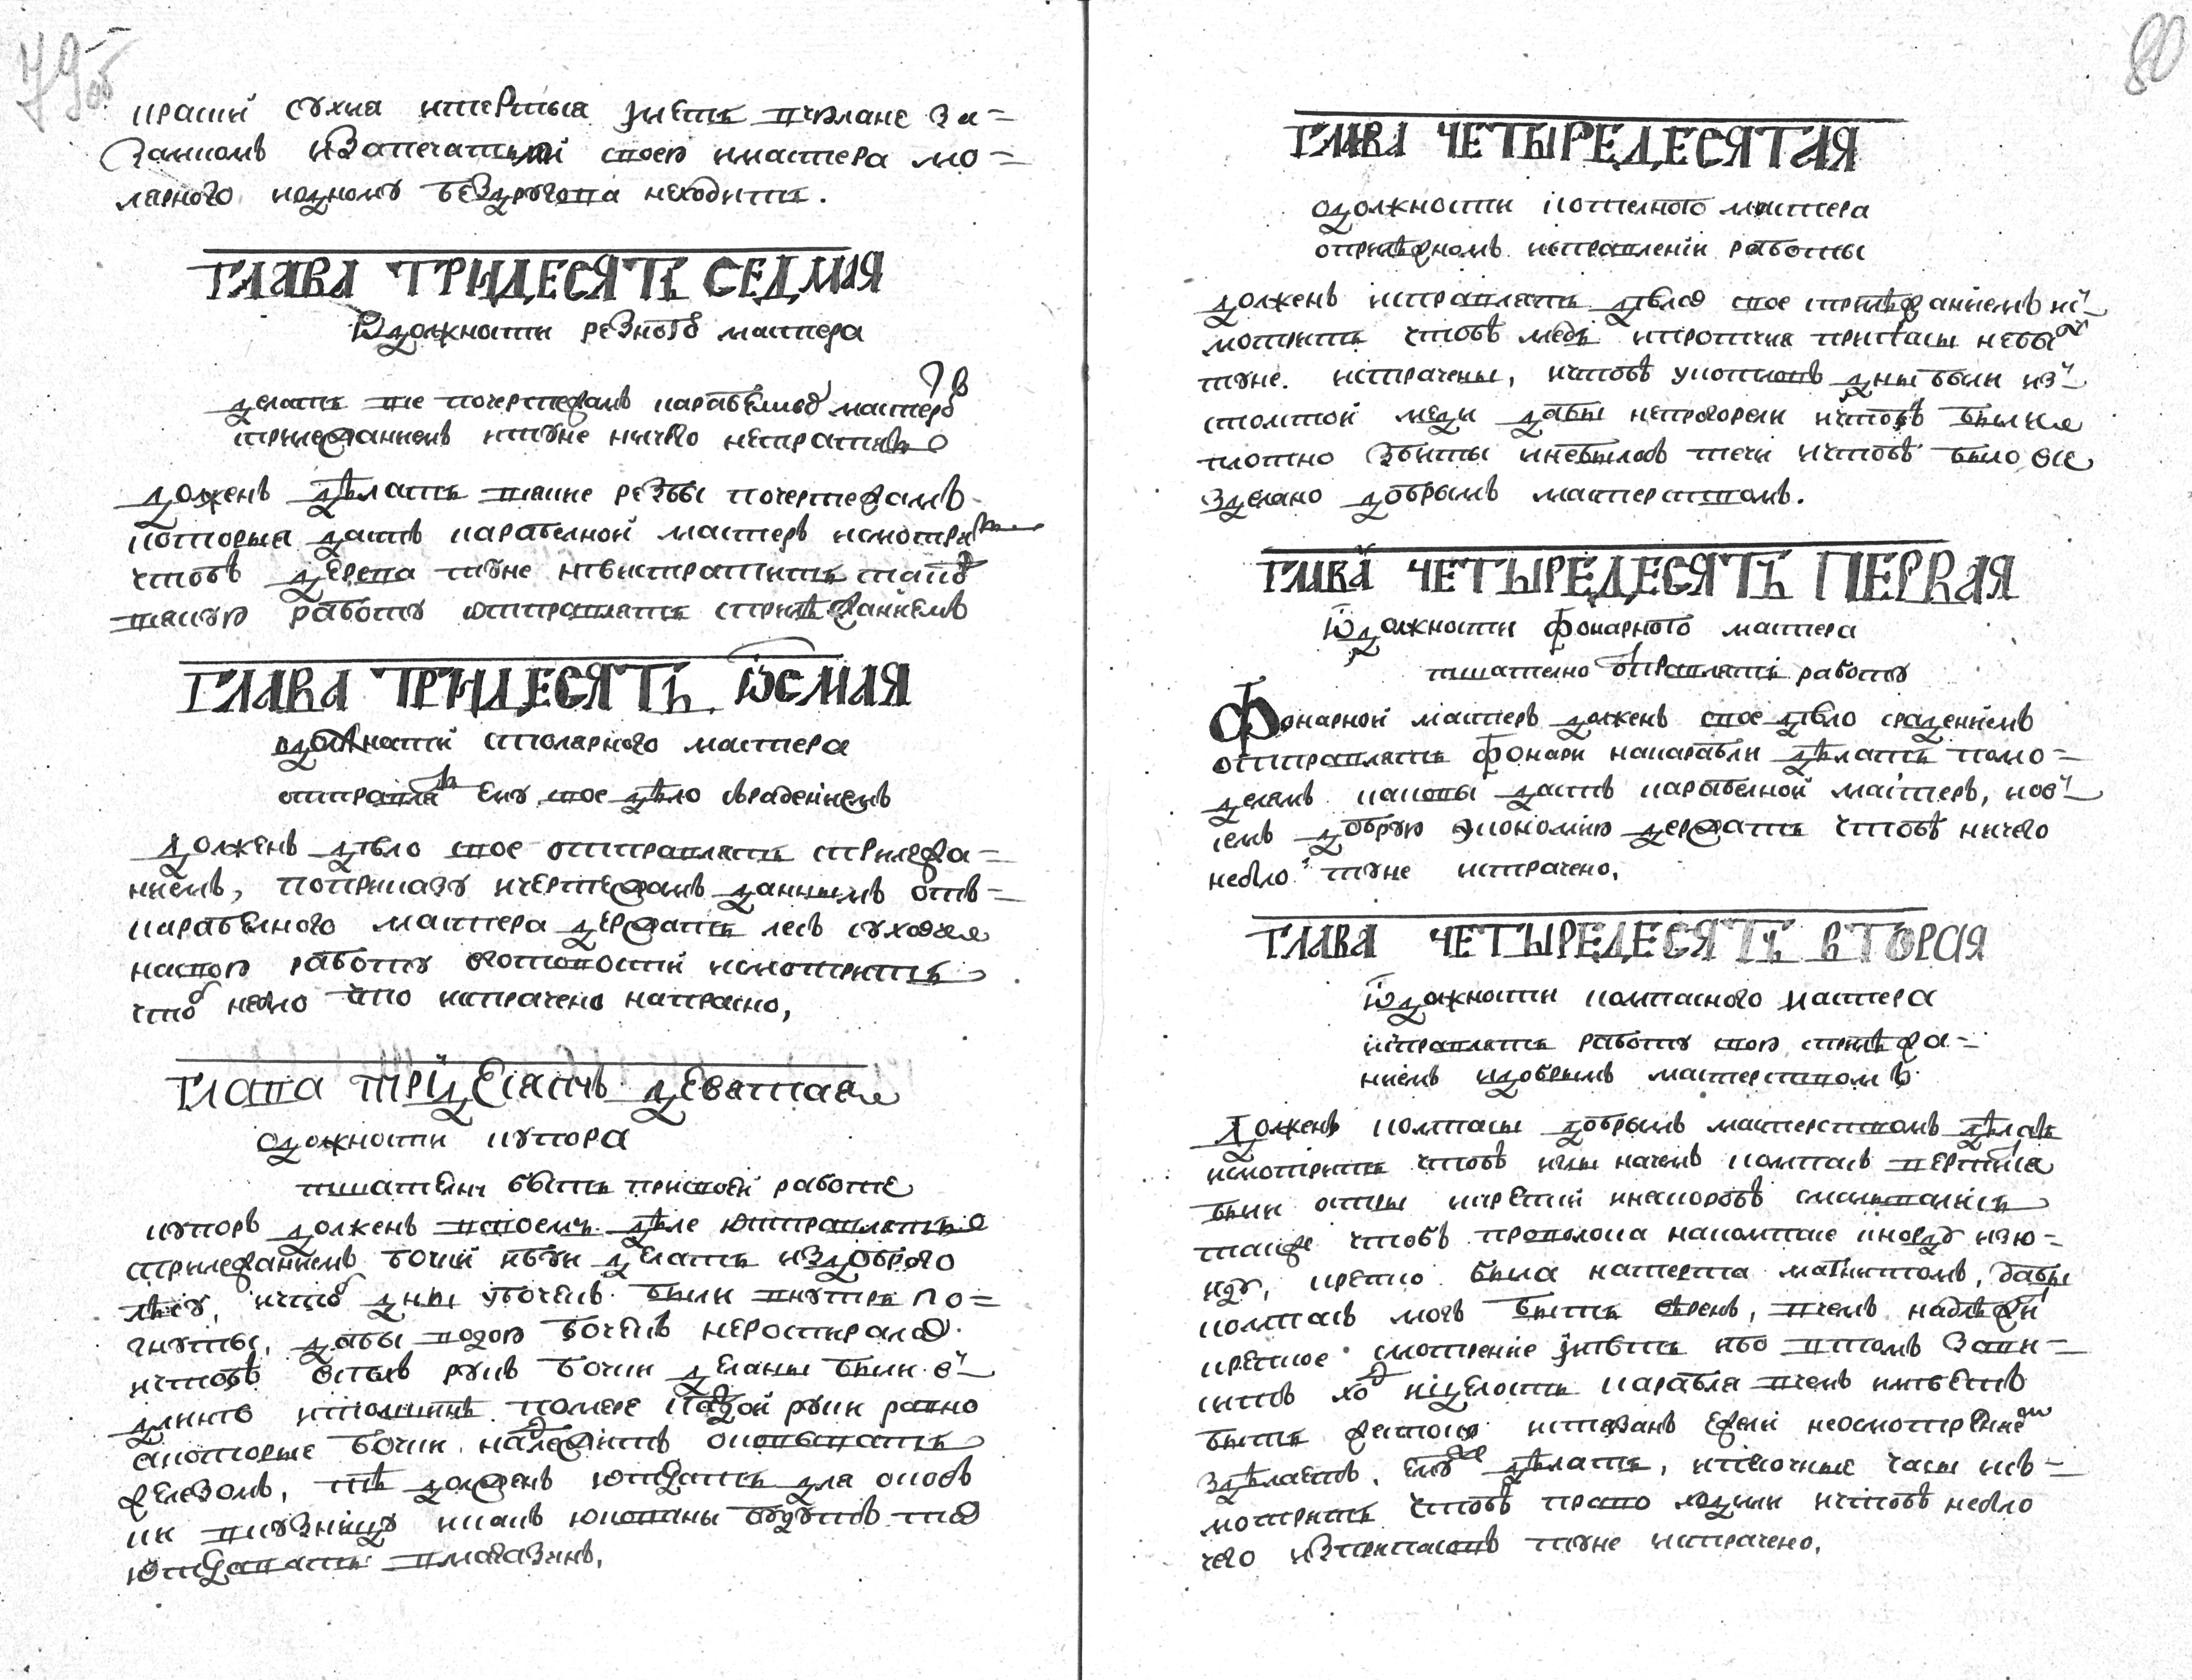 79 об
краски сухия итертыя иметь вчюлане за=
замкомъ изапечатми своею имастера мо=
лярного иодному бездругова неходить.
ГЛАВА ТРИДЕСЯТЬ СЕДМАЯ
Ѡдолжности резного мастера
делать все почертежамъ карабелного мастера
сприлежаниемъ ивтуне ничего нестратить
долженъ дѣлать всякие резбы почертежамъ
которыя дастъ карабелной мастеръ исмотрить
чтобъ дерева втуне неистратить такоже
всякую работу ѡтправлять сприлѣжаниемъ
ГЛАВА ТРИДЕСЯТЬ ѠСМАЯ
одолжности столярного мастера
отправлять ему свое дѣло сърадениемъ
долженъ дѣло свое отправлять сприлежа=
ниемъ, поприказу ичертежамъ даннымъ отъ=
карабелного мастера держать лесъ сухой
насвою работу вготовости исмотрить
чтоб небыло что истрачено напрасно,
ГЛАВА ТРИДЕСЯТЬ ДЕВЯТАЯ
одолжности купора
тщателну быть присвоей работе
купоръ долженъ всвоемъ дѣле ѡтправлять
сприлежаниемъ бочки ибуи делать издоброго
лѣсу, ичтоб дны убочекъ были внутрь по=
гнуты, дабы водою бочекъ неростирало.
ичтобъ всѣхъ рукъ бочки деланы были в
длинѣ итолщинѣ помере каждой руки равно
акоторые бочки належитъ оковывать
железомъ, тѣ долженъ ѡтдать для оков
ки вкузницу икакъ ѡкованы будутъ то
ѡтдавать вмагазинъ,
80
ГЛАВА ЧЕТЫРЕДЕСЯТАЯ
одолжности котелного мастера
оприлѣжномъ исправлении работы
долженъ исправлять дѣло свое сприлѣжаниемъ ис
мотрить чтобъ медь ипротчия припасы небы
втуне истрачены, ичтобъ укотловъ дны были из
столстой меди дабы непрогорели ичтобъ были
плотно збиты инебылобъ течи ичтобъ было все
зделано добрымъ мастерствомъ.
ГЛАВА ЧЕТЫРЕДЕСЯТЬ ПЕРВАЯ
Ѡдолжности фонарного мастера
тщателно отправлять работу
Фонарной мастеръ долженъ свое дѣло срадениемъ
отправлять фонари накарабли дѣлать помо=
делямъ каковы дастъ карабелной мастеръ, ново
семъ добрую экономию держать чтобъ ничего
небыло втуне истрачено,
ГЛАВА ЧЕТЫРЕДЕСЯТЬ ВТОРАЯ
Ѡдолжности компасного мастера
исправлять работу свою сприлѣжа=
ниемъ идобрымъ мастерствомъ
Долженъ компасы добрымъ мастерствомъ дѣлать
исмотрить чтобъ иглы начемъ компасъ вертитца
были остры икрепки инескоробъ сламывались
также чтобъ проволока накомпасе кнорду изю=
йду, крепко была натерта магнитомъ, дабы
компасъ могъ быть вѣренъ, вчемъ надлежи
крепкое смотрение имѣть ибо втомъ запи=
ситъ ход ицелость карабля вчемъ имѣетъ
быть жестоко истязанъ ежели неосмотрение
здѣлаетъ. емуже дѣлать, ипесочные часы исъ=
мотрить чтобъ право ходили ичтобъ небыло
чего изприпасовъ втуне истрачено,